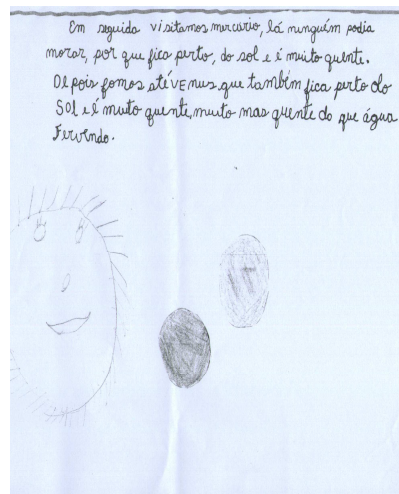 Em seguida visitamos mercurio, lá ninguém podia
morar, por que fica perto, do sol e é muito quente.
Depois fomos até vENUS, que também fica perto do
SOl e é muito quente, muito mas quente do que água
Fervendo.